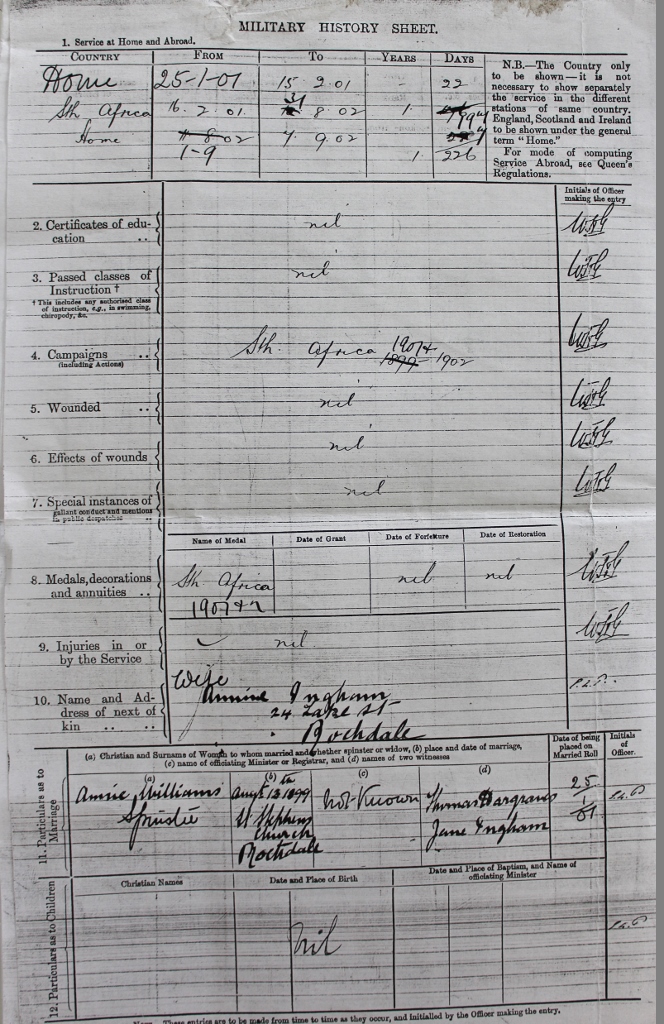 MILITARY HISTORY SHEET.
1. Service at Home and Abroad.
COUNTRY FROM TO YEARS DAYS
Home 25-1-01 15 2.01 - 22
Sth Africa 16. 2. 01. 31 8. 02 1.
Home 1-9 02 7. 9. 02 7
1. 226
N.B.—The Country only
to be shown—it is not
necessary to show separately
the service in the different
stations of same country.
England, Scotland and Ireland
to be shown under the general
term "Home."
For mode of computing
Service Abroad, see Queen's
Regulations.
Initials of Officer
making the entry
2. Certificates of edu-
cation .. nil
3. Passed classes of
Instruction † nil
† This includes any authorised class
of instruction, e.g., in swimming,
chiropody, &c.
4. Campaigns .. Sth. Africa 1901+ 1899-1902
(including Actions)
5. Wounded .. nil
6. Effects of wounds nil
7. Special instances of nil
gallant conduct and mentions
in public despatches ..
Name of Medal Date of Grant Date of Forfeiture Date of Restoration
8. Medals, decorations
and annuities .. Sth Africa nil nil
9. Injuries in or
by the Service nil.
10. Name and Ad-
dress of next of
kin .. ..
Wife
Annie Ingham
24 Lake St
Rochdale
11. Particulars as to Marriage
(a) Christian and Surname of Woman to whom married and whether spinster or widow, (b) place and date of marriage,
(c) name of officiating Minister or Registrar, and (d) names of two witnesses
Date of being
placed on
Married Roll
Initials
of
Officer.
(a) (b) (c) (d)
Annie Williams
Spinster
Augst 13th 1899
St Stephens
Church
Rochdale
Not Known
Thomas Hargraves
Jane Ingham
25
1
01
12. Particulars as to Children
Christian Names Date and Place of Birth Date and Place of Baptism, and Name of
officiating Minister
Nil
Note.—These entries are to be made from time to time as they occur, and initialled by the Officer making the entry.